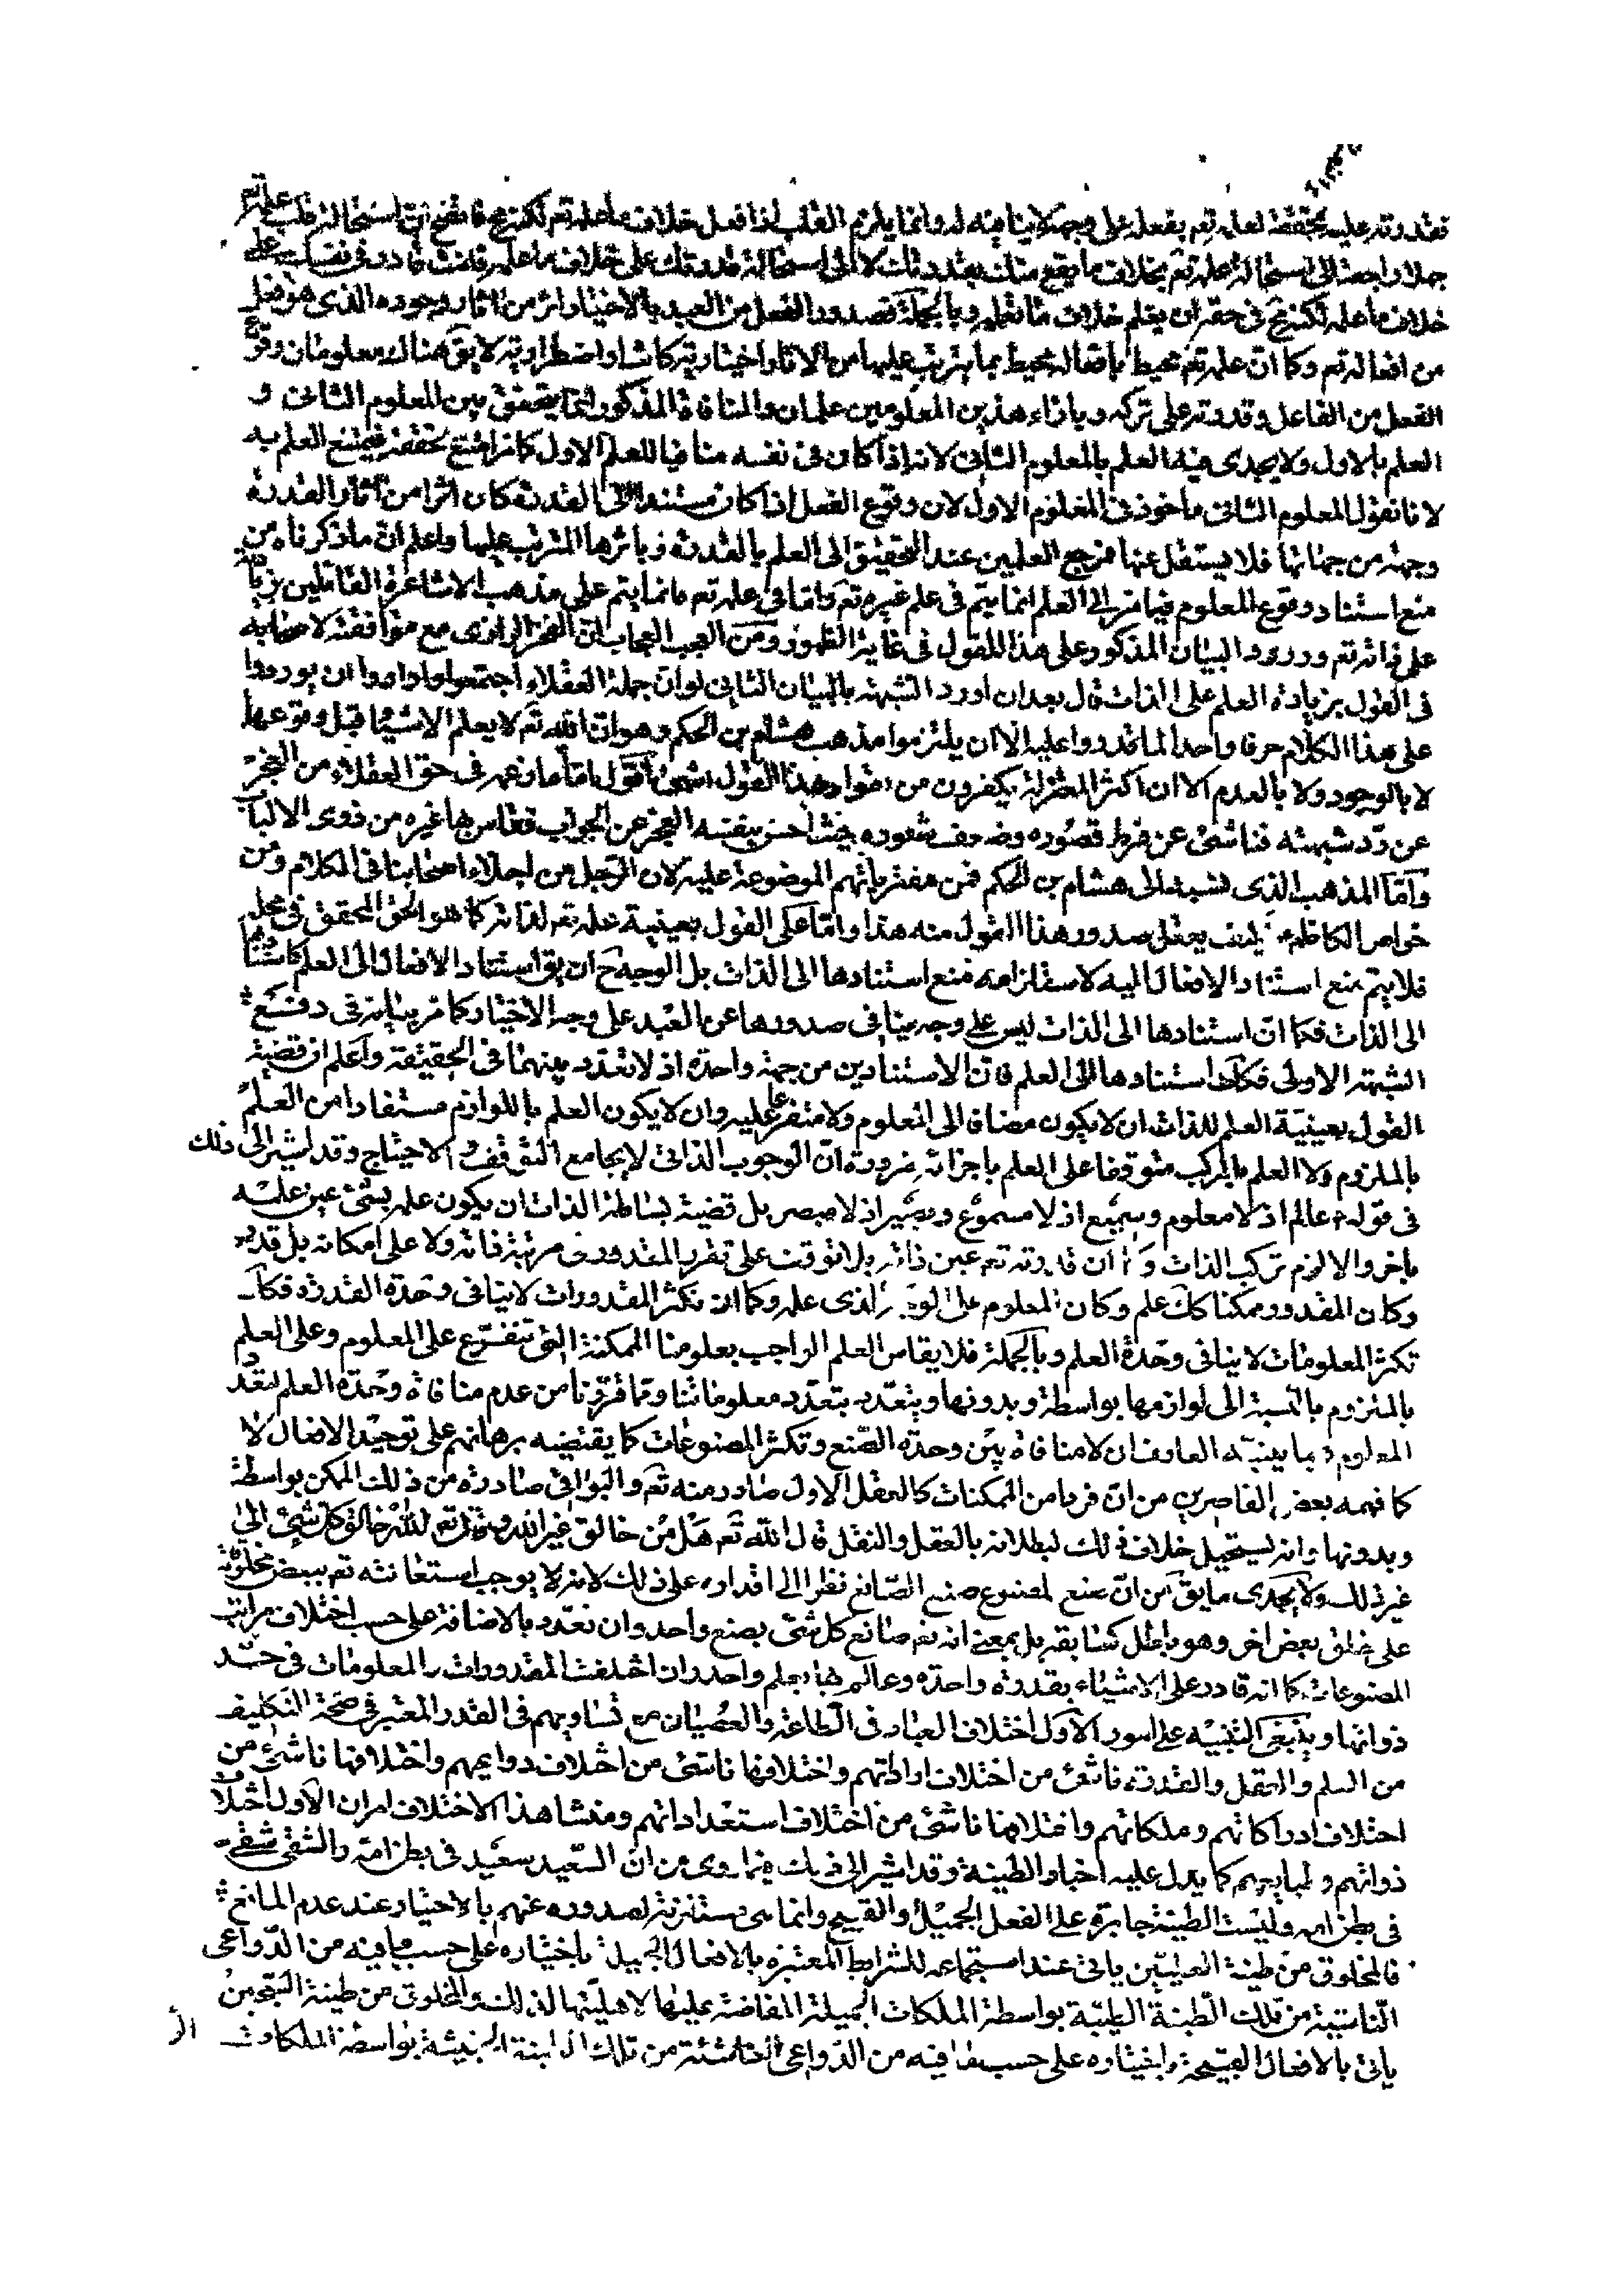 فقدرته عليه محققة لعلمه تعم بفعله على وجه لا ينافيه له وانما يلزم القلب اذا فعل خلاف ما علمه تعم لكنه مع استحالة قلب علمه تعم
جهلا راجعة الى استحالة علمه تعم بخلاف ما يقع منك بقدرتك لا الى استحالة قدرتك على خلاف ما علمه فانت قادر في نفسك على
خلاف ما علمه لكنه في حقه ان يعلم خلاف ما تفعله وبالجملة فصدور الفعل من العبد بالاختيار اثر من اثار وجوده الذى هو فعل
من افعاله تعم وكما ان علمه تعم محيط بافعاله محيط بما يترتب عليها من الاثار اختيارية كانت او اضطرارية لا يق هناك معلومان وقوع
الفعل من الفاعل وقدرته على تركه وبازاء هذين المعلومين علمان والمنافاة المذكورة انما يتحقق بين المعلوم الثانى و
العلم بالاول ولا يجدى فيه العلم بالمعلوم الثانى لانه اذا كان فى نفسه منافيا للعلم الاول كما مر امتنع تحققه فيمتنع العلم به
لانا نقول المعلوم الثانى ماخوذ فى المعلوم الاول لان وقوع الفعل اذا كان مستندا الى القدرة كان اثرا من آثار القدرة
وجهة من جهاتها فلا يستقل عنها فمرجع العلمين عند التحقيق الى العلم بالقدرة وباثرها المترتب عليها واعلم ان ما ذكرناه من
منع استناد وقوع المعلوم فيما مر الى العلم انما يتم فى علم غيره تعم واما فى علمه تعم فانما يتم على مذهب الاشاعرة القائلين بزيادته
على ذاته تعم وورود البيان المذكور على هذا القول فى غاية الظهور ومن العجب العجاب ان الفخر الرازى مع موافقته لاصحابه
فى القول بزيادة العلم على الذات قال بعد ان اورد الشبهة بالبيان الثانى لو ان جملة العقلاء اجتمعوا وارادوا ان يوردوا
على هذا الكلام حرفا واحدا لما قدروا عليه الا ان يلتزموا مذهب هشام بن الحكم وهو ان الله تعم لا يعلم الاشياء قبل وقوعها
لا بالوجود ولا بالعدم الا ان اكثر المعتزلة يكفرون من يقول بهذا القول انتهى اقول اما ما زعمه فى حق العقلاء من العجز
عن رد شبهته فناشئ عن فرط قصوره وضعف شعوره بحيث احس بنفسه العجز عن الجواب فقاس بها غيره من ذوى الالباب
واما المذهب الذى نسبه الى هشام بن الحكم فمن مفترياتهم الموضوعة عليه لان الرجل من اجلاء اصحابنا فى الكلام ومن
خواص الكاظم ع كيف يعقل صدور هذا القول منه هذا واما على القول بعينية علمه تعم لذاته كما هو الحق المحقق فى محله
فلا يتم منع استناد الافعال اليه لاستلزامه منع استنادها الى الذات بل الوجه ح ان يق استناد الافعال الى العلم كاستنادها
الى الذات فكما ان استنادها الى الذات ليس على وجه ينافى صدورها عن العبد على وجه الاختيار كما مر بيانه فى دفع
الشبهة الاولى فكك استنادها الى العلم فان الاستنادين من جهة واحدة اذ لا تعدد بينهما فى الحقيقة واعلم ان قضية
القول بعينية العلم للذات ان لا يكون مضافا الى المعلوم ولا متفرعا عليه وان لا يكون العلم باللوازم مستفادا من العلم
بالملزوم ولا العلم بالمركب متوقفا على العلم باجزائه ضرورة ان الوجوب الذاتى لا يجامع التوقف والاحتياج وقد اشير الى ذلك
فى قوله ع عالم اذ لا معلوم وسميع اذ لا مسموع وبصير اذ لا مبصر بل قضية بساطة الذات ان يكون علمه بشئ عين علمه
باخر والا لزم تركب الذات وكما ان قدرته تعم عين ذاته بلا توقف على تقرر المقدور فى مرتبة ذاته ولا على امكانه بل قدير
وكان المقدور ممكنا كك علم وكان المعلوم على الوجه الذى علمه وكما ان تكثر المقدورات لا ينافى وحدة القدرة فكك
تكثر المعلومات لا ينافى وحدة العلم وبالجملة فلا يقاس العلم الواجب بعلومنا الممكنة التى تتفرع على المعلوم وعلى العلم
بالملزوم بالنسبة الى لوازمها بواسطة وبدونها ويتعدد بتعدد معلوماتنا ومما قررنا من عدم منافاة وحدة العلم لتعدد
المعلوم ربما يتنبه العارف ان لا منافاة بين وحدة الصنع وتكثر المصنوعات كما يقتضيه برهانهم على توحيد الافعال لا
كما فهمه بعض القاصرين من ان فردا من الممكنات كالعقل الاول صادر منه تعم والبواقى صادرة من ذلك الممكن بواسطة
وبدونها وانه يستحيل خلاف ذلك لبطلانه بالعقل والنقل قال الله تعم هل من خالق غير الله وقال تعم الله خالق كل شئ الى
غير ذلك ولا يجدى ما يق من ان صنع المصنوع صنع الصانع نظرا الى اقداره على ذلك لانه لا يوجب استعانته تعم ببعض مخلوقاته
على خلق بعض اخر وهو باطل كسابقه بل بمعنى انه تعم صانع كل شئ بصنع واحد وان تعدد بالاضافة على حسب اختلاف مراتب
المصنوعات كما انه قادر على الاشياء بقدرة واحدة وعالم بها بعلم واحد وان اختلفت المقدورات والمعلومات فى حد
ذواتها وينبغى التنبيه على امور الاول اختلاف العباد فى الطاعة والعصيان مع تساويهم فى القدر المعتبر فى صحة التكليف
من العلم والعقل والقدرة ناشئ من اختلاف اراداتهم واختلافها ناشئ من اختلاف دواعيهم واختلافها ناشئ من
اختلاف ادراكاتهم وملكاتهم واختلافها ناشئ من اختلاف استعداداتهم ومنشا هذا الاختلاف امران الاول اختلاف
ذواتهم وطبايعهم كما يدل عليه اخبار الطينة وقد اشير الى ذلك فيما روى من ان السعيد سعيد فى بطن امه والشقى شقى
فى بطن امه وليست الطينة جابرة على الفعل الجميل والقبيح وانما هى مستلزمة لصدوره عنهم بالاختيار عند عدم المانع
فالمخلوق من طينة العليين ياتى عند استجماعه للشرايط المعتبرة بالافعال الجميلة باختياره على حسب ما فيه من الدواعى
الناشئة من تلك الطينة الطيبة بواسطة الملكات الجميلة المفاضة عليها لاهليتها لذلك والمخلوق من طينة السجين
ياتى بالافعال القبيحة باختياره على حسب ما فيه من الدواعى الناشئة من تلك الطينة الخبيثة بواسطة الملكات